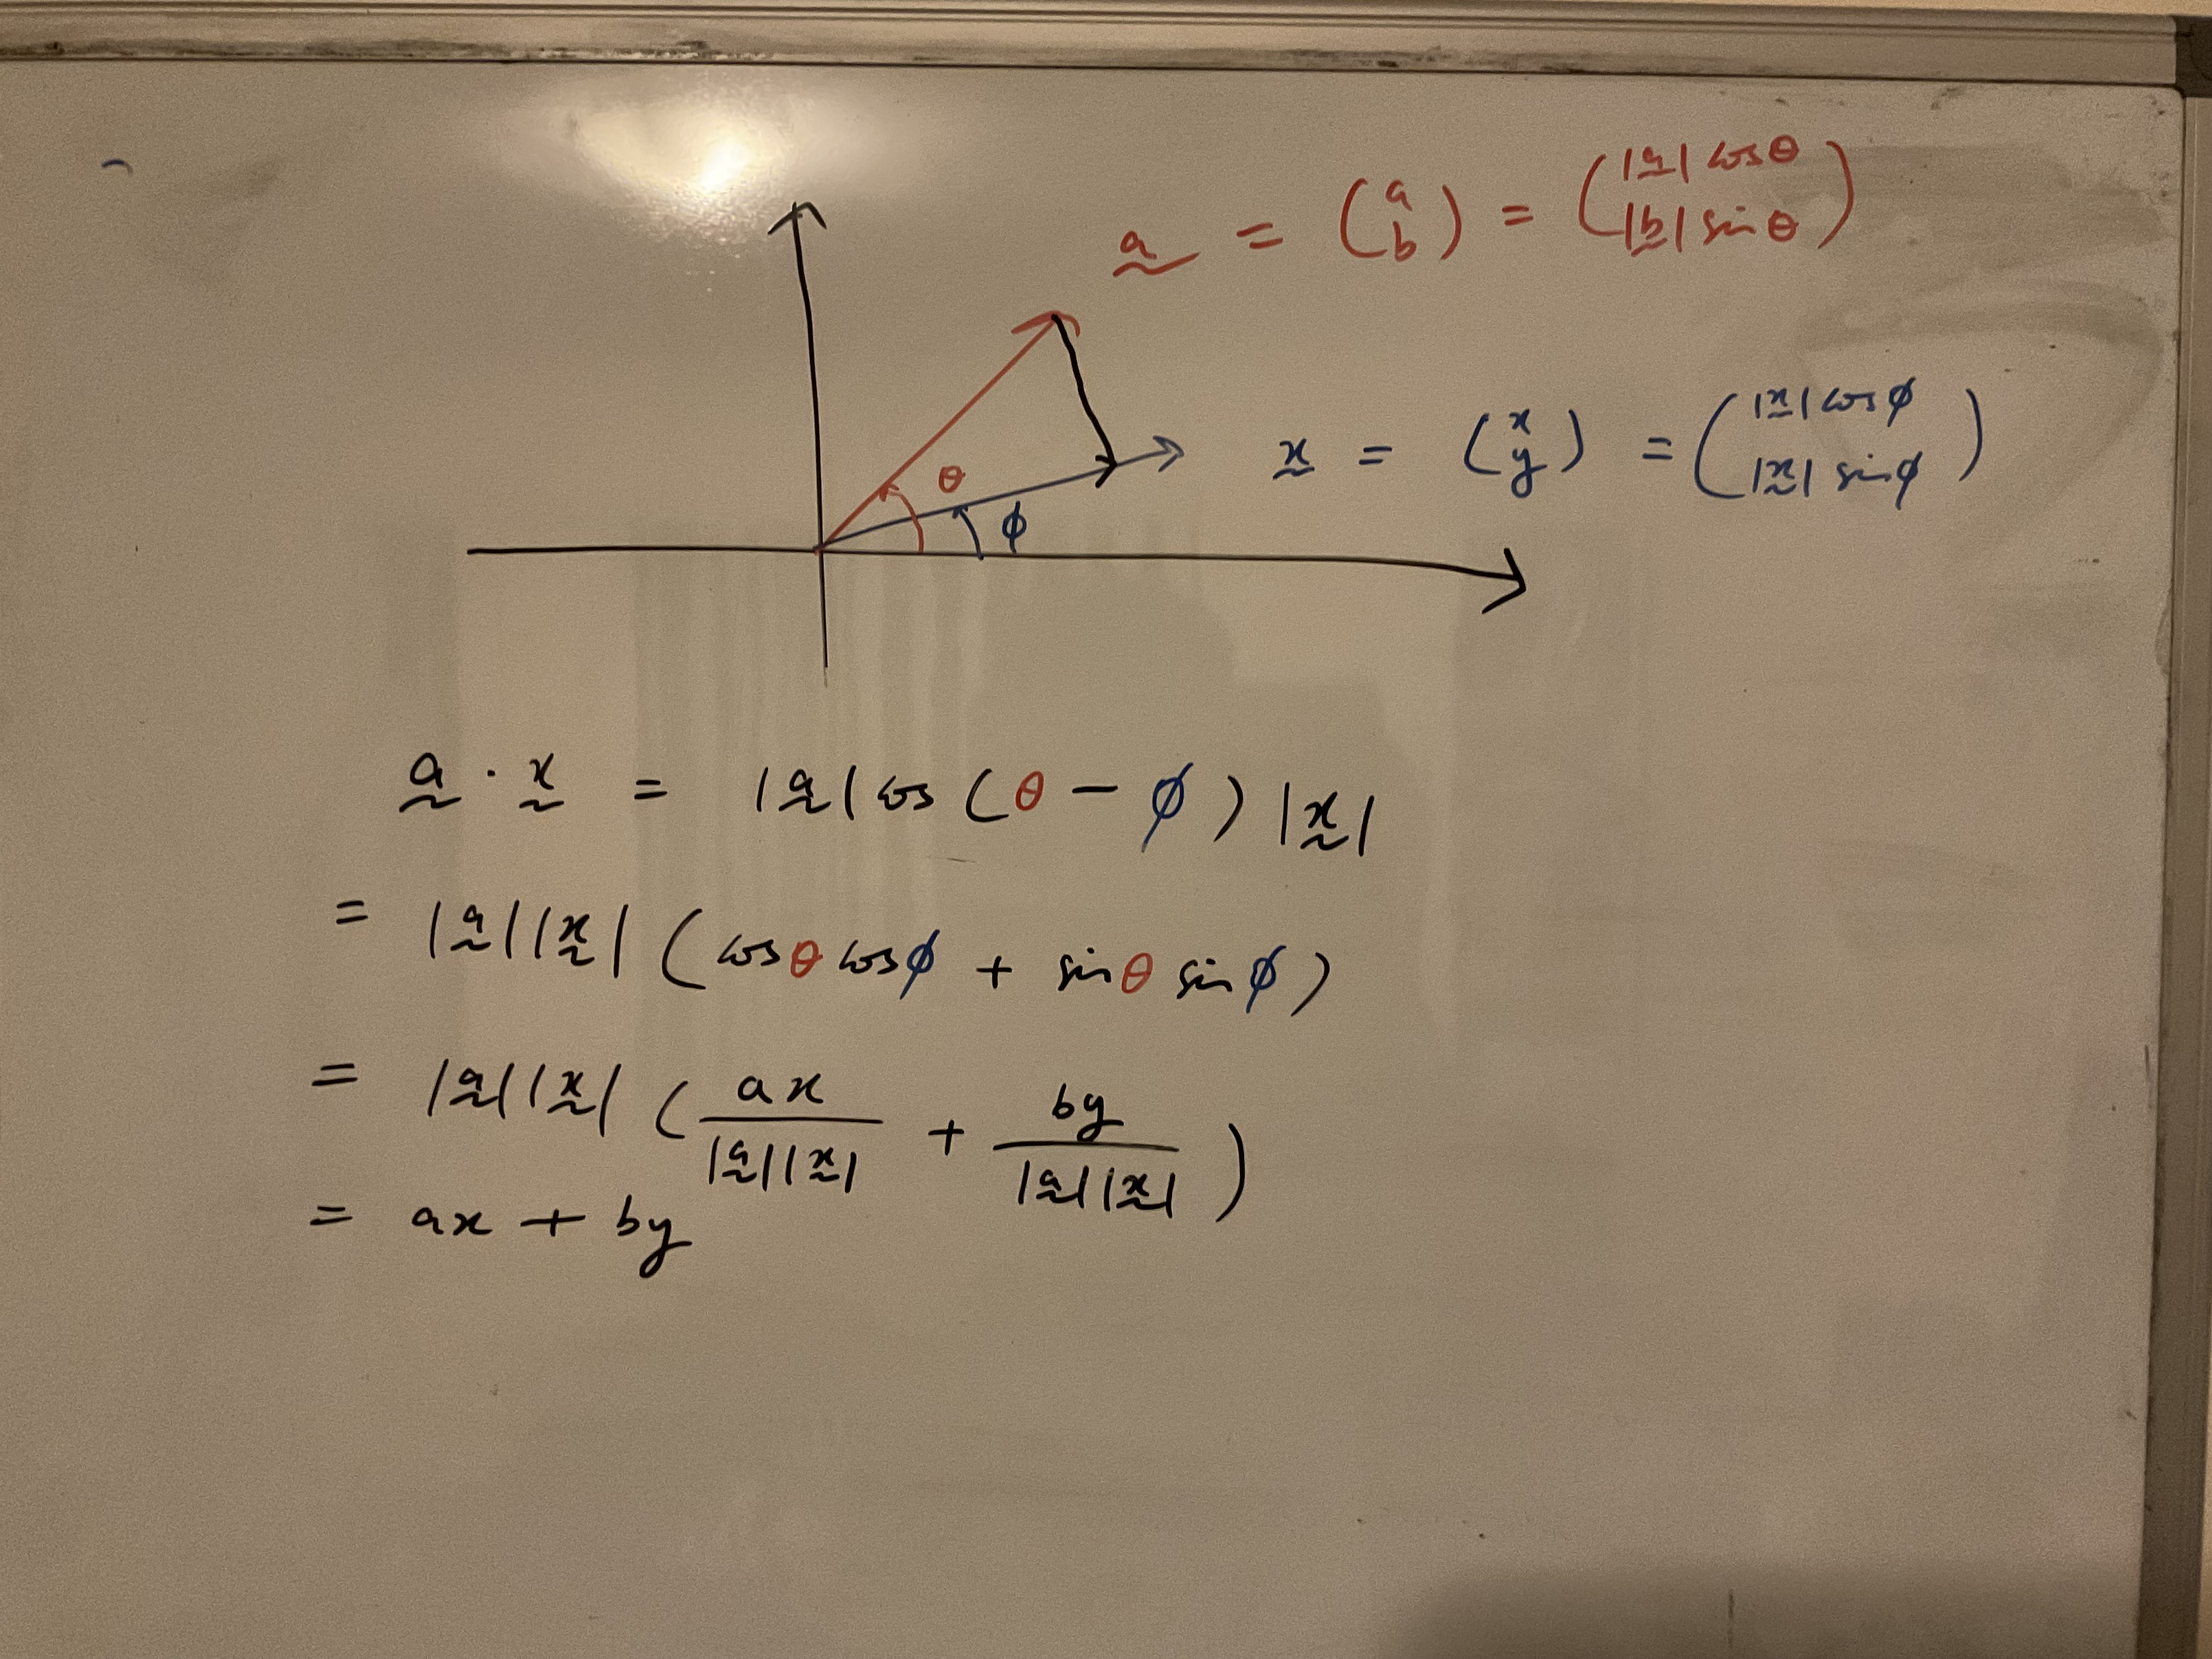 a̰ = (a b) = (|a̰| cosθ |b̰| sinθ)
θ
x̰ = (x y) = (|x̰| cosϕ |x̰| sinϕ)
ϕ
a̰ · x̰ = |a̰| cos (θ − ϕ) |x̰|
= |a̰| |x̰| (cosθ cosϕ + sinθ sinϕ)
= |a̰| |x̰| (ax/|a̰||x̰| + by/|a̰||x̰|)
= ax + by